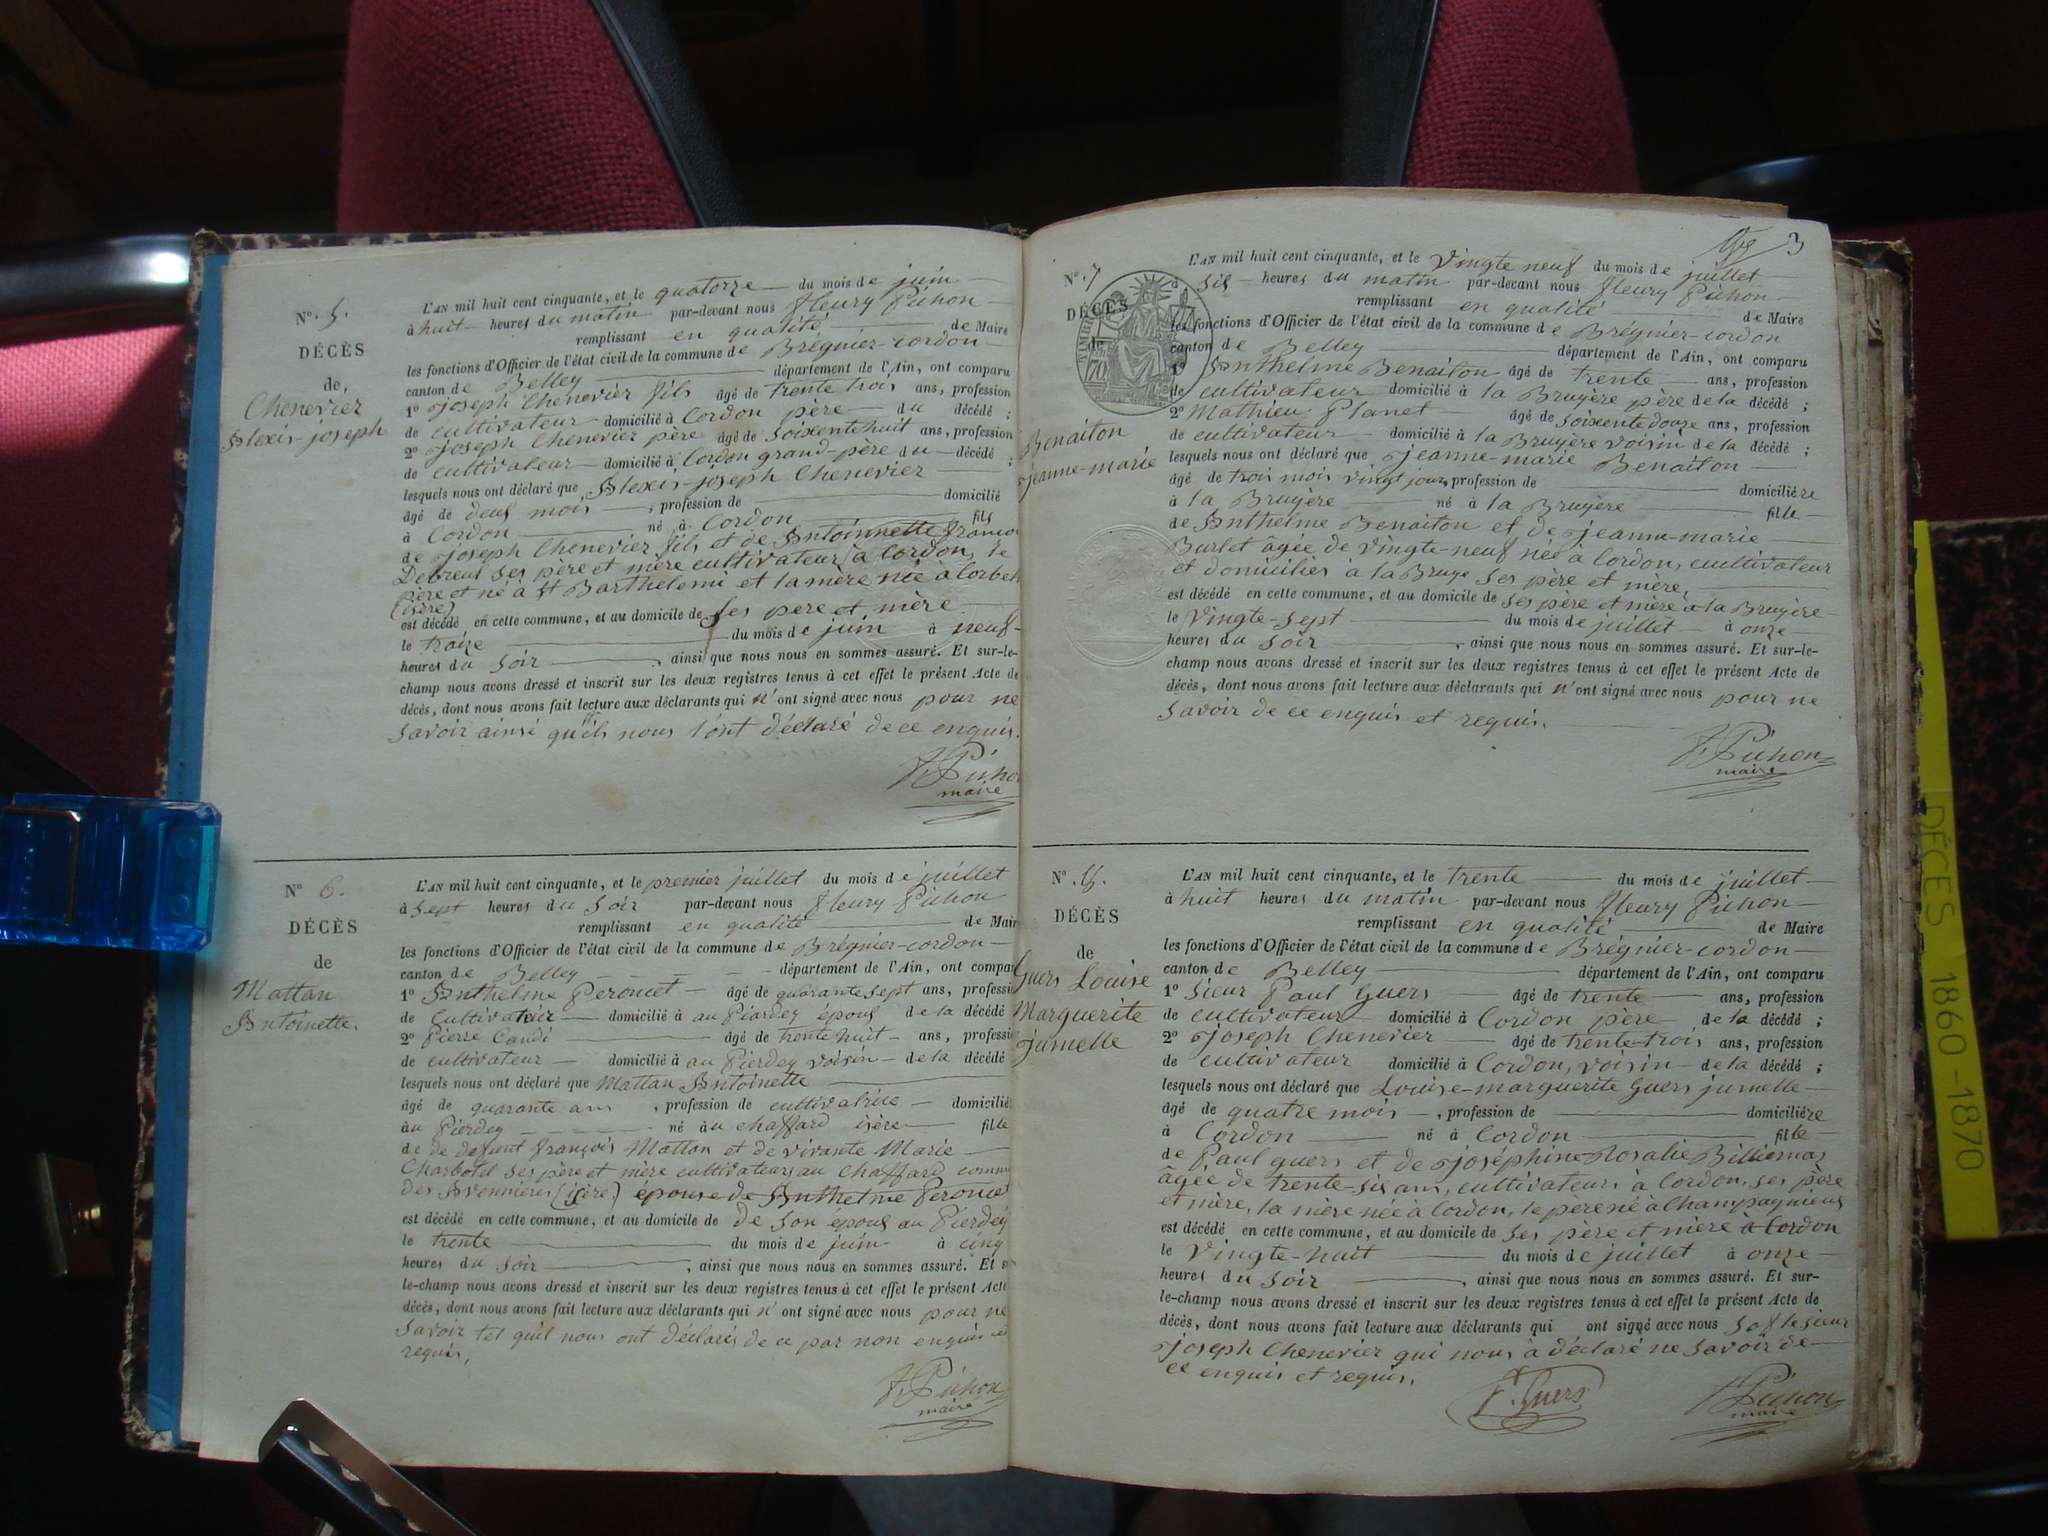 N° 5.
DÉCÈS
de
Chenevier
Alexis-joseph
L'AN mil huit cent cinquante, et le quatorze du mois de juin
à huit heures du matin par-devant nous fleury Pichon
remplissant en qualité de Maire
les fonctions d'Officier de l'état civil de la commune de Brégnier-cordon
canton de Belley département de l'Ain, ont comparu
1° Joseph Chenevier fils âgé de trente trois ans, profession
de cultivateur domicilié à Cordon père du décédé ;
2° joseph Chenevier père âgé de soixentehuit ans, profession
de cultivateur domicilié à Cordon grand-père du décédé ;
lesquels nous ont déclaré que Alexis-joseph Chenevier
âgé de deux mois , profession de domicilié
à Cordon né à Cordon fils
de joseph Chenevier fils et de Antoinnette
Debreul ses père et mère cultivateur à Cordon, le
père et né à St Barthelemi et la mère née à Corbel
(isère)
est décédé en cette commune, et au domicile de ses père et mère
le traize du mois de juin à neuf
heures du soir , ainsi que nous nous en sommes assuré. Et sur-le-
champ nous avons dressé et inscrit sur les deux registres tenus à cet effet le présent Acte de
décès, dont nous avons fait lecture aux déclarants qui n'ont signé avec nous pour ne
savoir ainsi qu'ils nous l'ont déclaré de ce enquis.
F. Pichon
maire
N° 6.
DÉCÈS
de
Mattan
Antoinette.
L'AN mil huit cent cinquante, et le premier juillet du mois de juillet
à sept heures du soir par-devant nous fleury Pichon
remplissant en qualité de Maire
les fonctions d'Officier de l'état civil de la commune de Brégnier-cordon
canton de Belley département de l'Ain, ont comparu
1° Anthelme Peroncet âgé de quarante sept ans, profession
de Cultivateur domicilié à au Piardey époux de la décédé
2° Pierre Candi âgé de trente huit ans, profession
de cultivateur domicilié à au Pierdey voisin de la décédé
lesquels nous ont déclaré que Mattan Antoinette
âgé de quarante ans , profession de cultivatrice domicilié
à au Pierdey né à au chaffard isère fille
de de defunt françois Mattan et de vivante Marie
Charbotel ses père et mère cultivateurs au chaffard commune
des Avennières (isère) épouse de Anthelme Peroncet
est décédé en cette commune, et au domicile de de son époux au Pierdey
le trente du mois de juin à cinq
heures du soir , ainsi que nous nous en sommes assuré. Et sur-
le-champ nous avons dressé et inscrit sur les deux registres tenus à cet effet le présent Acte
décès, dont nous avons fait lecture aux déclarants qui n'ont signé avec nous pour ne
savoir tel quil nous ont déclarés de ce par non enquis et
requis,
F. Pichon
maire
3
N° 7
DÉCÈS
de
Benaiton
jeanne-marie
L'AN mil huit cent cinquante, et le vingte neuf du mois de juillet
six heures du matin par-devant nous fleury Pichon
remplissant en qualité de Maire
les fonctions d'Officier de l'état civil de la commune de Brégnier-cordon
canton de Belley département de l'Ain, ont comparu
1° Anthelme Benaiton âgé de trente ans, profession
de cultivateur domicilié à la Bruyère père de la décédé ;
2° Mathieu Planet âgé de soixente douze ans, profession
de cultivateur domicilié à la Bruyère voisin de la décédé ;
lesquels nous ont déclaré que jeanne-marie Benaiton
âgé de trois mois vingt jours, profession de domicilière
à la Bruyère né à la Bruyère fille
de Anthelme Benaiton et de jeanne-marie
Burlet âgée de vingte-neuf née à Cordon, cultivateur
et domiciliés à la Bruye ses père et mère,
est décédé en cette commune, et au domicile de ses père et mère à la Bruyère
le vingte-sept du mois de juillet à onze
heures du soir , ainsi que nous nous en sommes assuré. Et sur-le-
champ nous avons dressé et inscrit sur les deux registres tenus à cet effet le présent Acte de
décès, dont nous avons fait lecture aux déclarants qui n'ont signé avec nous pour ne
savoir de ce enquis et requis.
F. Pichon
maire
N° 8.
DÉCÈS
de
Guers Louise
Marguerite
jumelle
L'AN mil huit cent cinquante, et le trente du mois de juillet
à huit heures du matin par-devant nous fleury Pichon
remplissant en qualité de Maire
les fonctions d'Officier de l'état civil de la commune de Brégnier-cordon
canton de Belley département de l'Ain, ont comparu
1° sieur Paul Guers âgé de trente ans, profession
de cultivateur domicilié à Cordon père de la décédé ;
2° joseph Chenevier âgé de trente-trois ans, profession
de cultivateur domicilié à Cordon, voisin de la décédé ;
lesquels nous ont déclaré que Louise-marguerite Guers jumelle
âgé de quatre mois , profession de domicilière
à Cordon né à Cordon fille
de Paul guers et de joséphine Rosalie Billiemas
âgée de trente-six ans, cultivateurs à Cordon, ses père
et mère, la mère née à Cordon, le père né à Champagnieux
est décédé en cette commune, et au domicile de ses père et mère à Cordon
le vingte-huit du mois de juillet à onze
heures du soir , ainsi que nous nous en sommes assuré. Et sur-
le-champ nous avons dressé et inscrit sur les deux registres tenus à cet effet le présent Acte de
décès, dont nous avons fait lecture aux déclarants qui ont signé avec nous sof le sieur
joseph Chenevier qui nous à déclaré ne savoir de
ce enquis et requis.
P. Guers
F. Pichon
maire
DÉCÈS 1860-1870